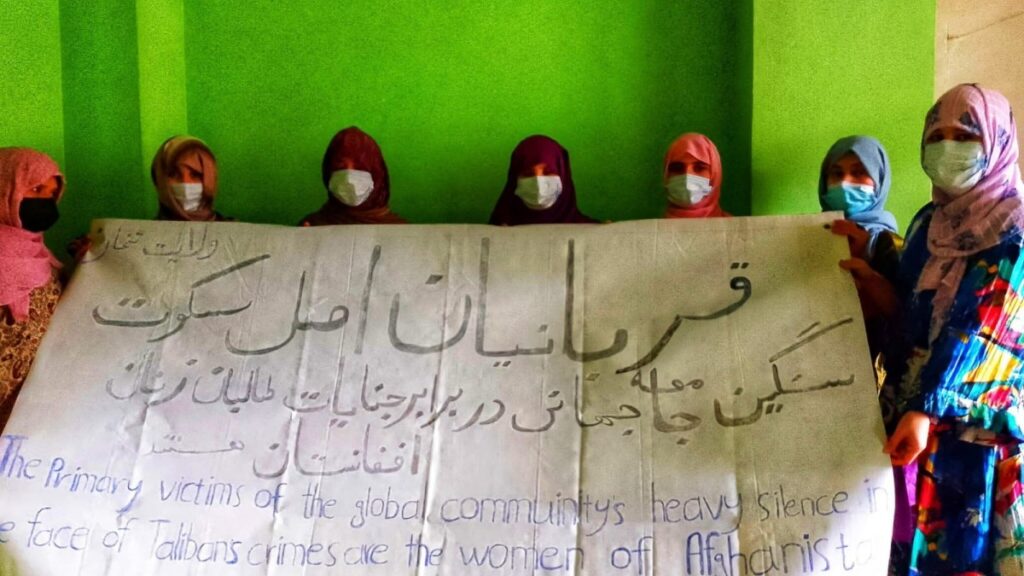 ولایت
قربانیان اصل سکوت
سنگین جامعه جهانی در برابر جنایات طالبان زنان
افغانستان هستند
The Primary victims of the global commuinity's heavy silence in
e face of Talibans crimes are the women of Afghanista